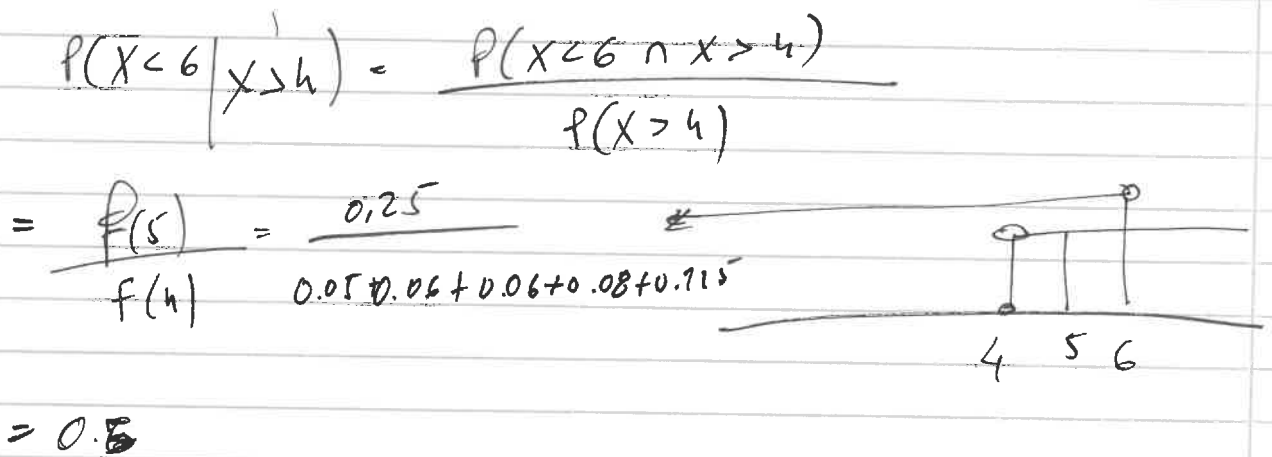 P(X<6 | X>4) = P(X<6 ∩ X>4) / P(X>4)
= P(5) / F(4) = 0,25 / 0.05+0.06+0.06+0.08+0.115
4 5 6
= 0.5